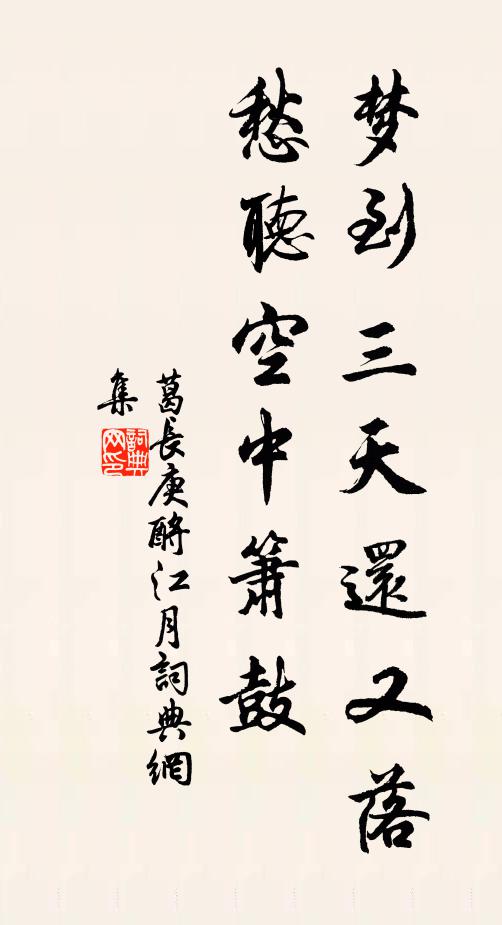 梦到三天還又落
愁聽空中簫鼓
葛長庚酹江月詞典網
集
詞典
网印